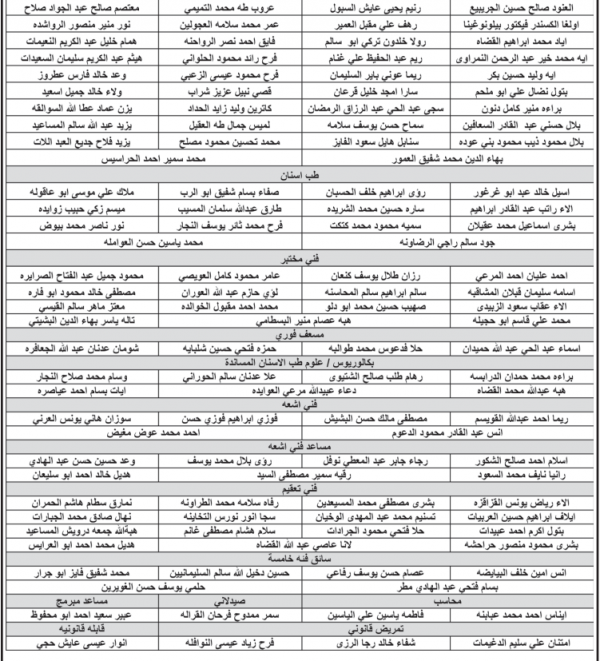 العنود صالح حسين الجريبيع رنيم يحيى عايش السبول عروب طه محمد التميمي معتصم صالح عبد الجواد صلاح
اولغا الكسندر فيكتور بيلونوغينا رهف علي مقبل العمير عمر محمد سلامه العجولين نور منير منصور الرواشده
اياد محمد ابراهيم القضاه رولا خلدون تركي ابو سالم فايق احمد نصر الرواحنه همام خليل عبد الكريم النعيمات
ايه محمد خير عبد الرحمن النمراوي ريم عبد الحفيظ علي غنام فرح رائد محمود الحلواني هيثم عبد الكريم سليمان السعيدات
ايه وليد حسين بكر ريما عوني باير السليمان فرح محمود عيسى الزعبي وعد خالد فارس عطروز
بتول نضال علي ابو ملحم سارا امجد خليل قرعان قصي نبيل عزيز شراب ولاء خالد جميل اسعيد
براءه منير كامل دنون سجى عبد الحي عبد الرزاق الرمضان كاترين وليد زايد الحداد يزن عماد عطا الله السوالقه
بلال حسني عبد القادر السعافين سماح حسن يوسف سلامه لميس جمال طه العقيل يزيد عبد الله سالم المساعيد
بلال محمود ذيب محمود بني عوده سنابل هايل سعود الفايز محمد تحسين محمود مصلح يزيد فلاح جديع العبد اللات
بهاء الدين محمد شفيق العمور محمد سمير احمد الحراسيس
طب اسنان
اسيل خالد عبد ابو غرغور رؤى ابراهيم خلف الحسبان صفاء بسام شفيق ابو الرب ملاك علي موسى ابو عاقوله
الاء راتب عبد القادر ابراهيم ساره حسين محمد الشريده طارق عبدالله سلمان المسيب ميسم زكي حبيب زوايده
بشرى اسماعيل محمد عقيلان سميه محمود محمد كتكت فرح محمد ثائر يوسف النجار نور ناصر محمد بيوض
جود سالم راجي الرضاونه محمد ياسين حسن العوامله
فني مختبر
احمد عليان احمد المرعي رزان طلال يوسف كنعان عامر محمود كامل العويصي محمود جميل عبد الفتاح الصرايره
اسامه سليمان قبلان المشاقبه سالم ابراهيم سالم المحاسنه لؤي حازم عبد الله العوران مصطفى خالد محمود ابو فاره
الاء عقاب سعود الزبيدي صهيب حسين محمد ابو دلو محمد احمد مقبول الخوالده معتز ماهر سالم القيسي
محمد علي قاسم ابو حجيله هبه عصام منير البسطامي تاله ياسر بهاء الدين البشيتي
مسعف فوري
اسماء عبد الحي عبد الله حميدان حلا فدعوس محمد طوالبه حمزه فتحي حسين شلبايه شومان عدنان عبد الله الجعافره
بكالوريوس / علوم طب الاسنان المساندة
براءه محمد حمدان الدرابسه رهام طلب صالح الشتيوي علا عدنان سالم الحوراني وسام محمد صلاح النجار
هبه عبدالله محمد القضاه دعاء عبدالله مرعي العوايده ايات بسام احمد عياصره
فني اشعه
ريما احمد عبدالله القويسم مصطفى مالك حسن البشيش فوزي ابراهيم فوزي حسن سوزان هاني يونس العرني
انس عبد القادر محمود الدعوم احمد محمد عوض مغيض
مساعد فني اشعه
اسلام احمد صالح الشكور رجاء جابر عبد المعطي نوفل رؤى بلال محمد يوسف وعد حسين حسن عبد الهادي
رانيا نايف محمد السعود رقيه سمير مصطفى السيد هديل خالد احمد ابو سليعان
فني تعقيم
الاء رياض يونس القزاقزه بشرى مصطفى محمد المسيعدين رفاه سلامه محمد الطراونه نمارق سطام هاشم الحمران
ايلاف ابراهيم حسين العربيات تسنيم محمد عبد المهدي الوخيان سجا انور نورس التخاينه نهال صادق محمد الجبارات
بتول اكرم احمد عبيدات حلا فتحي محمود الجرادات سلام هشام مصطفى غانم هبةالله جمعه درويش المساعيد
بشرى محمود منصور حراحشه لانا عاصي عبد الله القضاه هديل محمد احمد ابو العرايس
سائق فئه خامسة
انس امين خلف البيايضه عصام حسن يوسف رفاعي حسين دخيل الله سالم السليمانيين محمد شفيق فايز ابو جرار
بسام فتحي عبد الهادي مطر حلمي يوسف حسن الغويرين
محاسب صيدلاني مساعد مبرمج
ايناس احمد محمد عبابنه فاطمه ياسين علي الياسين سمر ممدوح فرحان القراله عبير سعيد احمد ابو محفوظ
تمريض قانوني قابله قانونيه
امتنان علي سليم الدغيمات شفاء خالد رجا الرزي فرح زياد عيسى النوافله انوار عيسى عايش حجي